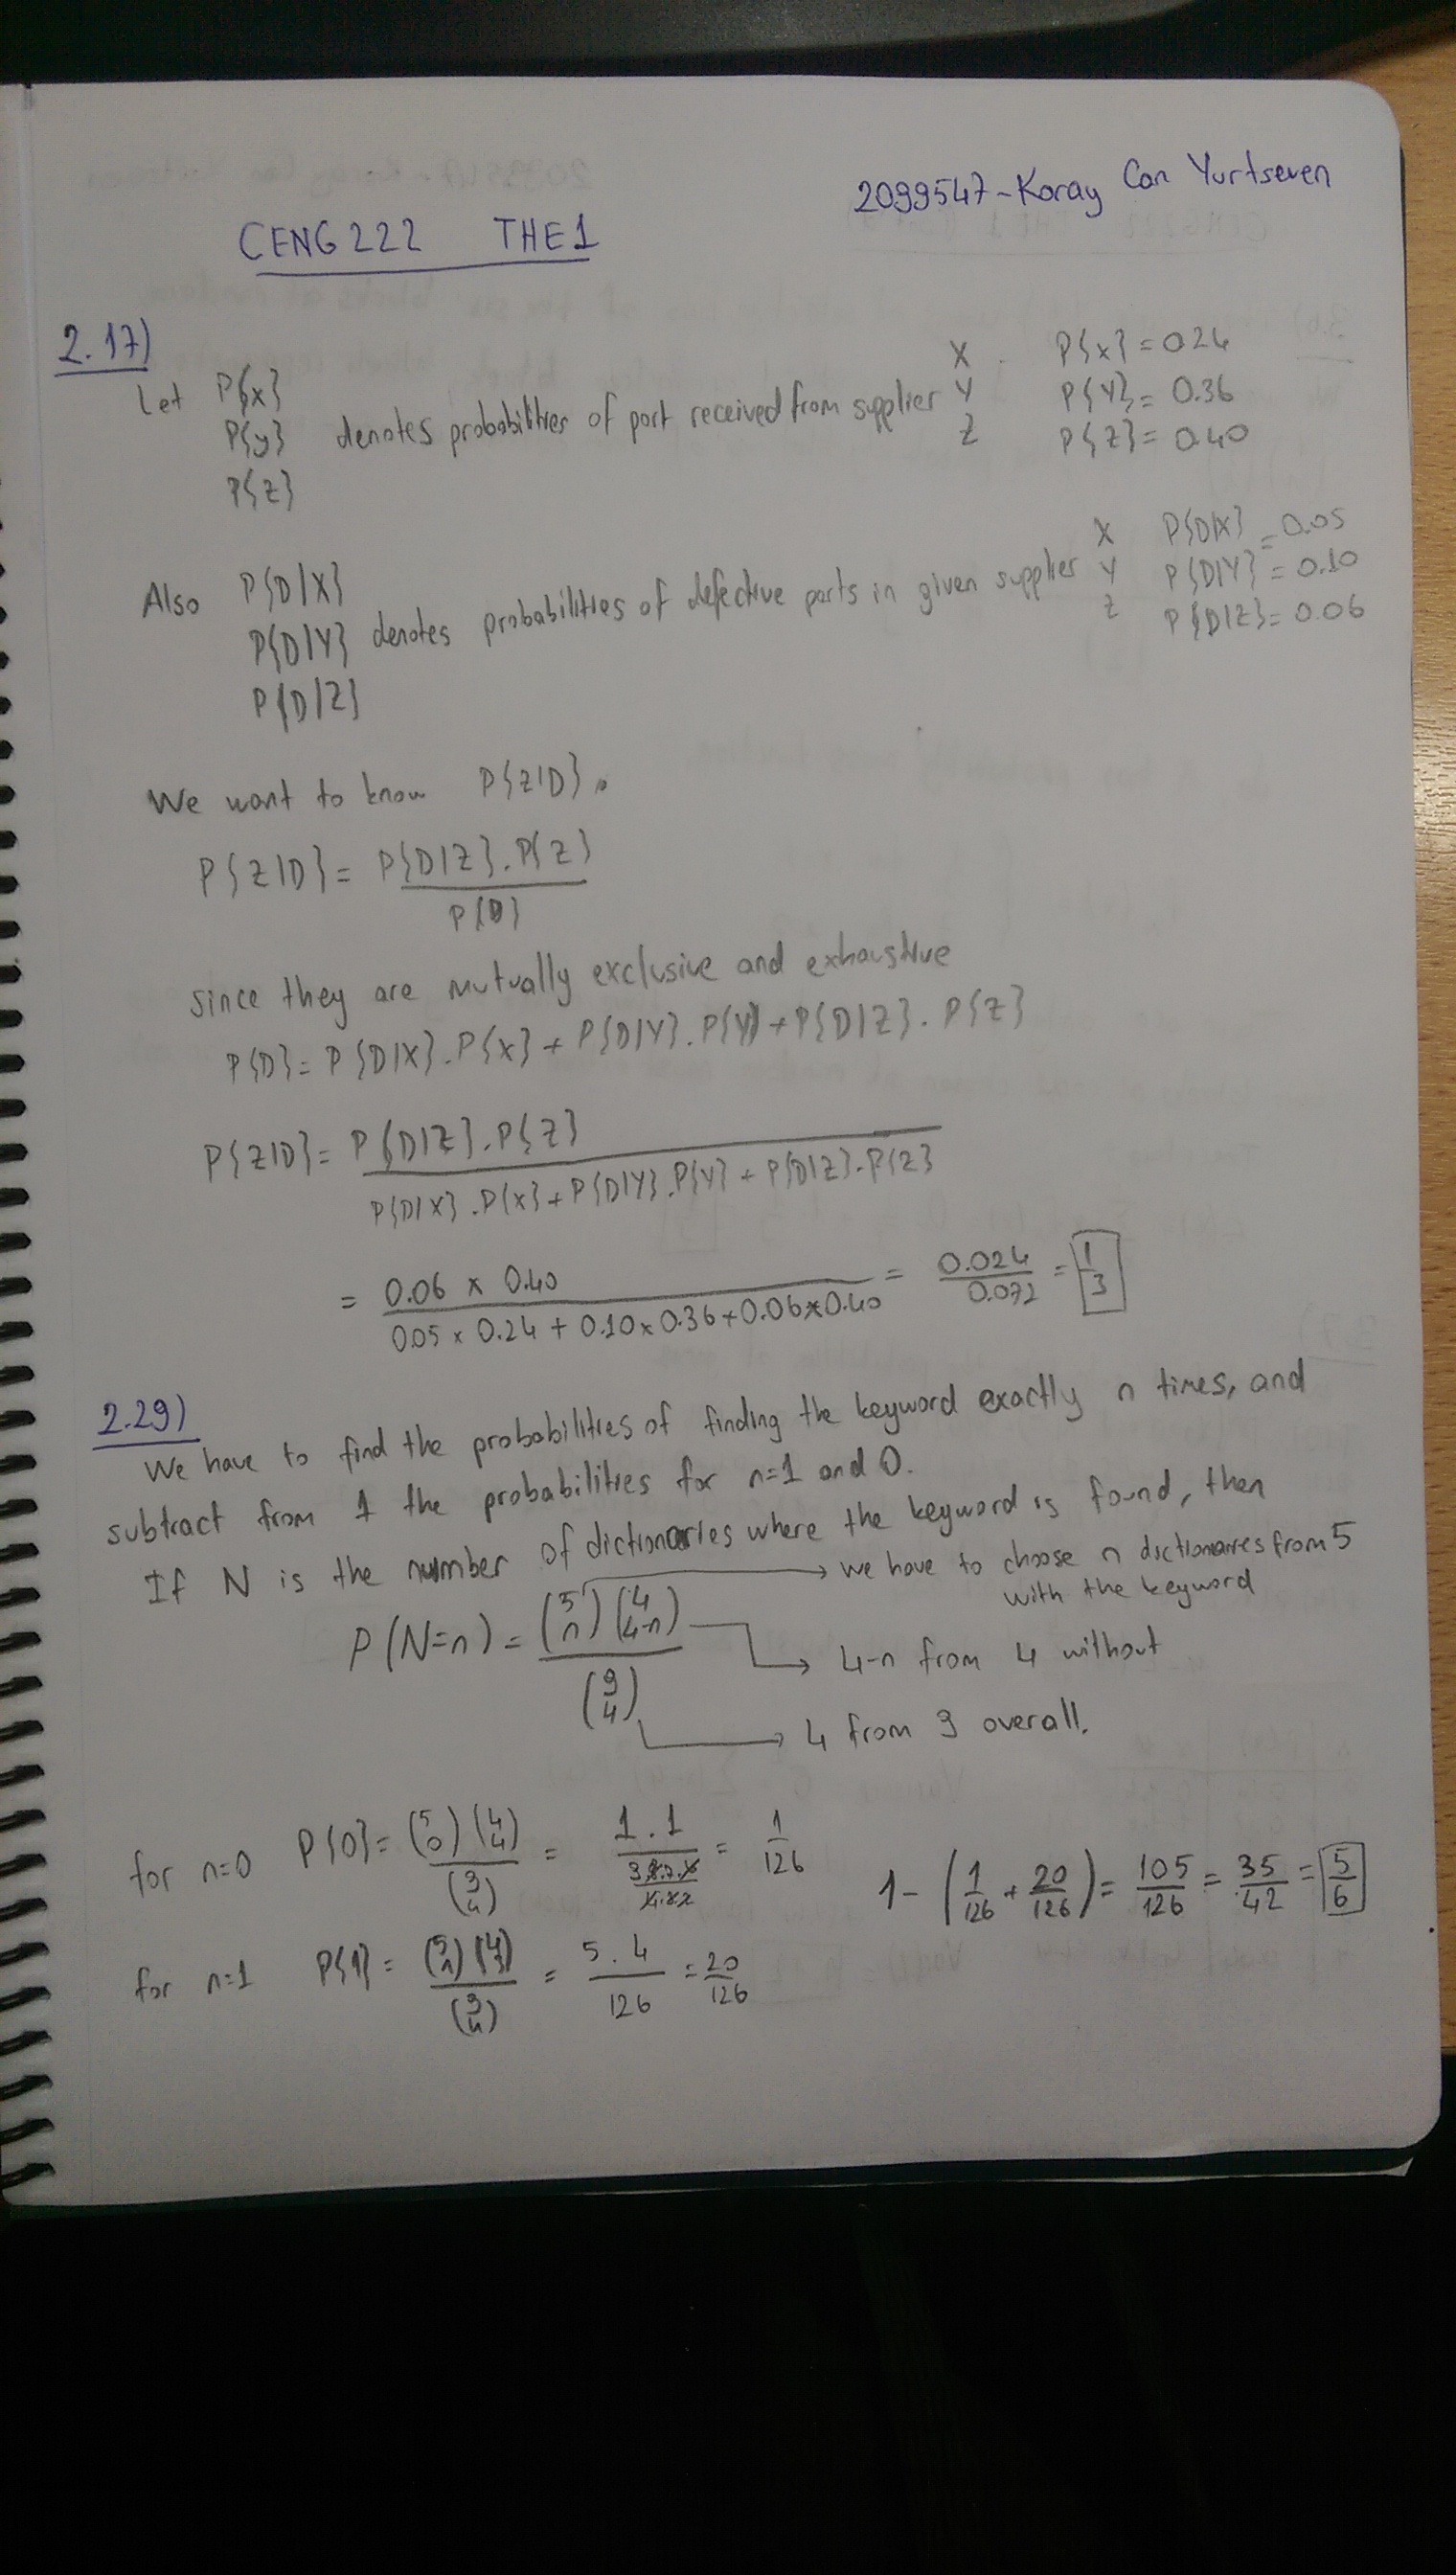 2099547-Koray Can Yurtseven
CENG222 THE1
2.17)
Let P{x} P{y} P{z} denotes probabilities of part received from supplier X Y Z
P{x} = 0.24
P{Y} = 0.36
P{Z} = 0.40
Also P{D|X} P{D|Y} P{D|Z} denotes probabilities of defective parts in given supplier X Y Z
P{D|X} = 0.05
P{D|Y} = 0.10
P{D|Z} = 0.06
We want to know P{Z|D}.
P{Z|D} = P{D|Z}.P{Z} / P{D}
Since they are mutually exclusive and exhaustive
P{D} = P{D|X}.P{x} + P{D|Y}.P{y} + P{D|Z}.P{Z}
P{Z|D} = P{D|Z}.P{Z} / P{D|X}.P{x} + P{D|Y}.P{Y} + P{D|Z}.P{Z}
= 0.06 x 0.40 / 0.05 x 0.24 + 0.10 x 0.36 + 0.06 x 0.40 = 0.024 / 0.072 = 1/3
2.29)
We have to find the probabilities of finding the keyword exactly n times, and
subtract from 1 the probabilities for n=1 and 0.
If N is the number of dictionaries where the keyword is found, then
P(N=n) = (5 n)(4 4-n) / (9 4)
→ we have to choose n dictionaries from 5
with the keyword
→ 4-n from 4 without
→ 4 from 9 overall.
for n=0 P{0} = (5 0)(4 4) / (9 4) = 1.1 / = 1/126
1 - (1/126 + 20/126) = 105/126 = 35/42 = 5/6
for n=1 P{1} = / (9 4) = 5.4 / 126 = 20/126